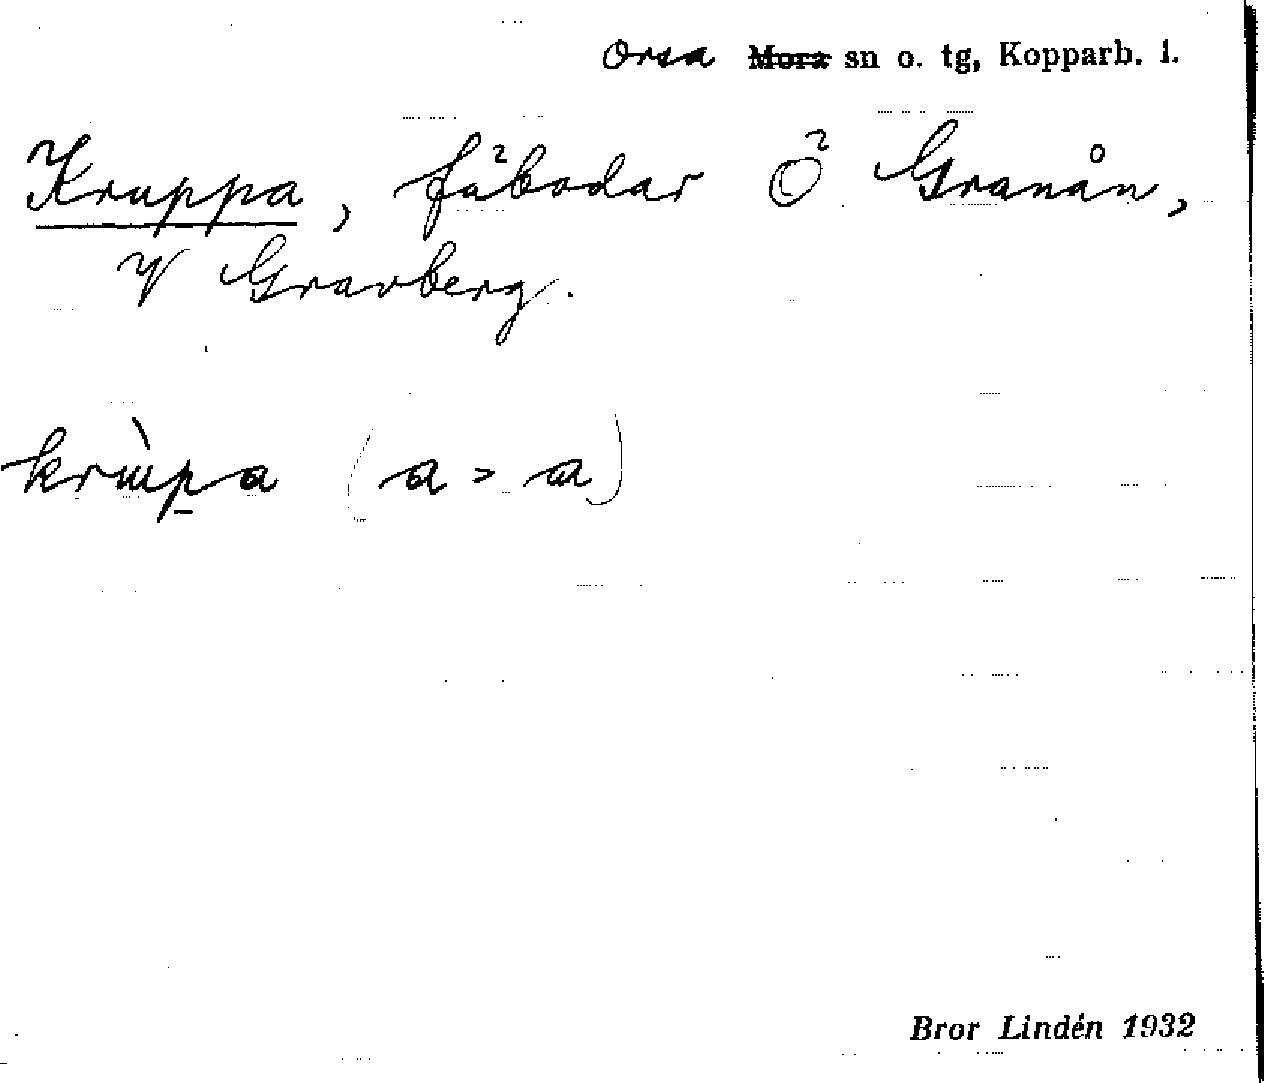 Orsa Mora sn o. tg, Kopparb. l.
Kruppa, fäbodar Ö Granån,
V Gravberg.
krùpa (a > a)
Bror Lindén 1932